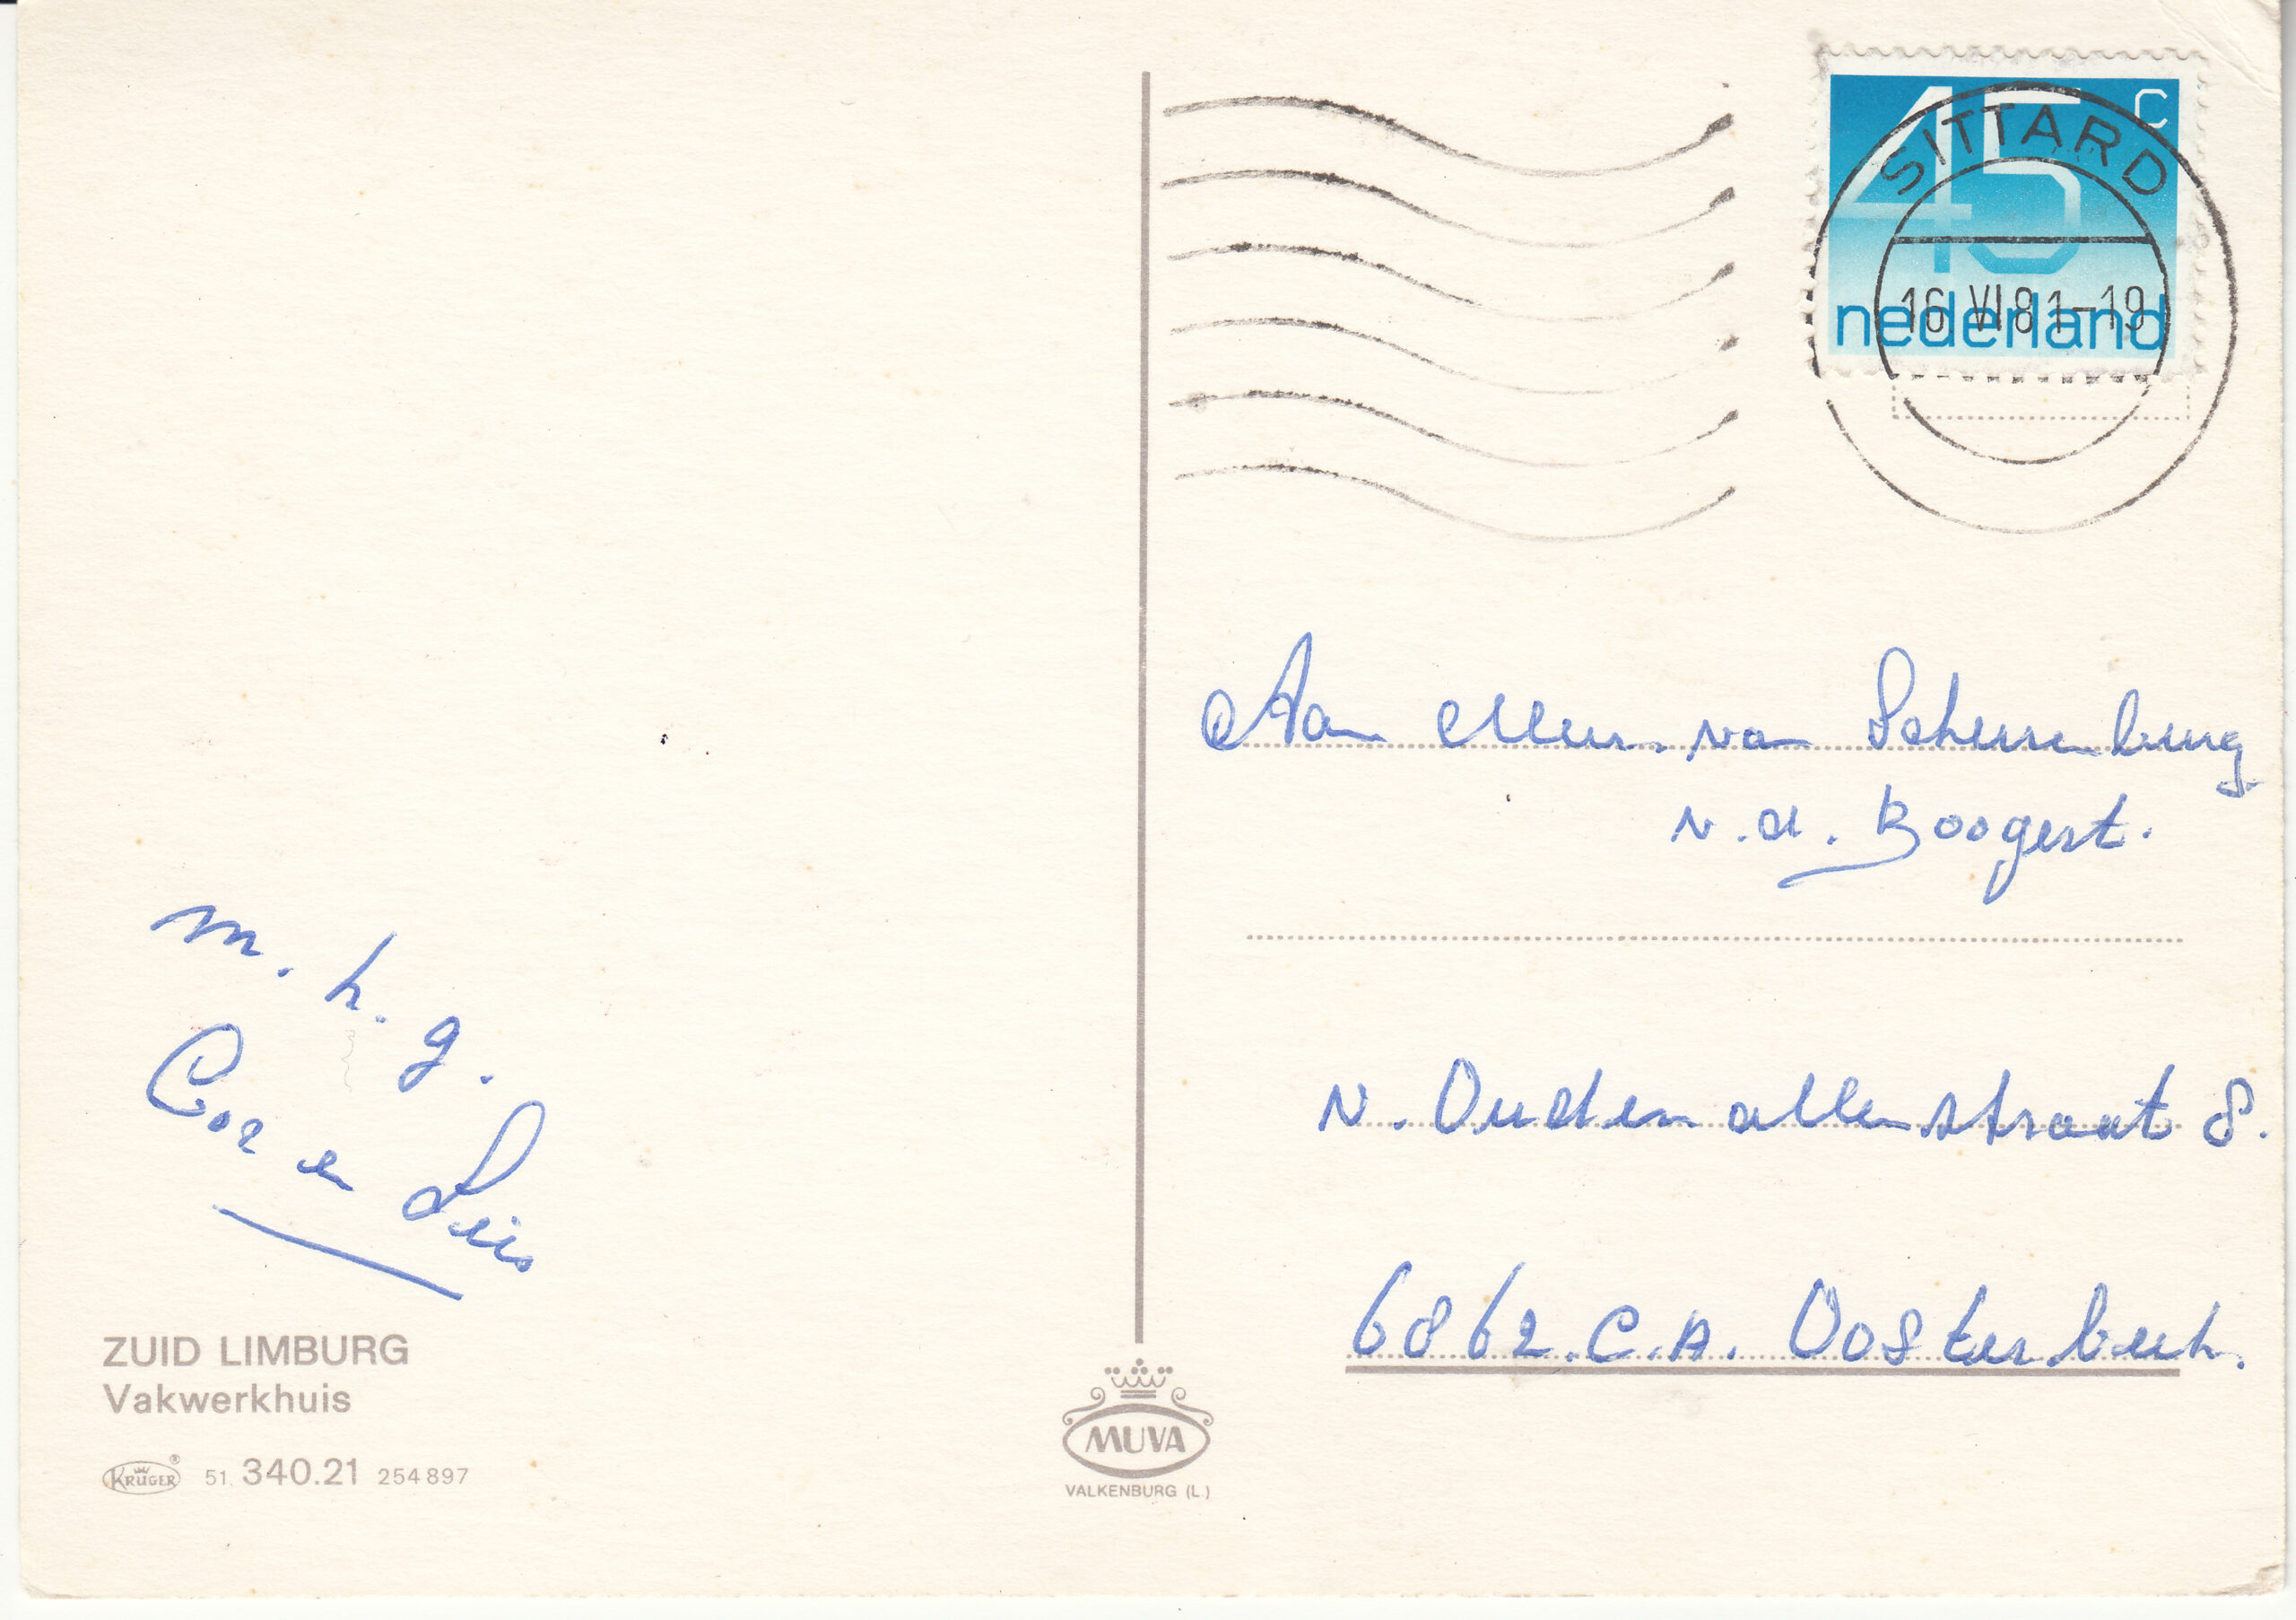 45 C
nederland
SITTARD
16 VI 81-19
Aan Mevr. van Scherrenburg
v.d. Boogert.
v. Oudenallenstraat 8.
6862.C.A. Oosterbeek.
m. h. g.
Cor en Lies
ZUID LIMBURG
Vakwerkhuis
KRÜGER® 51. 340.21 254897
MUVA
VALKENBURG (L.)